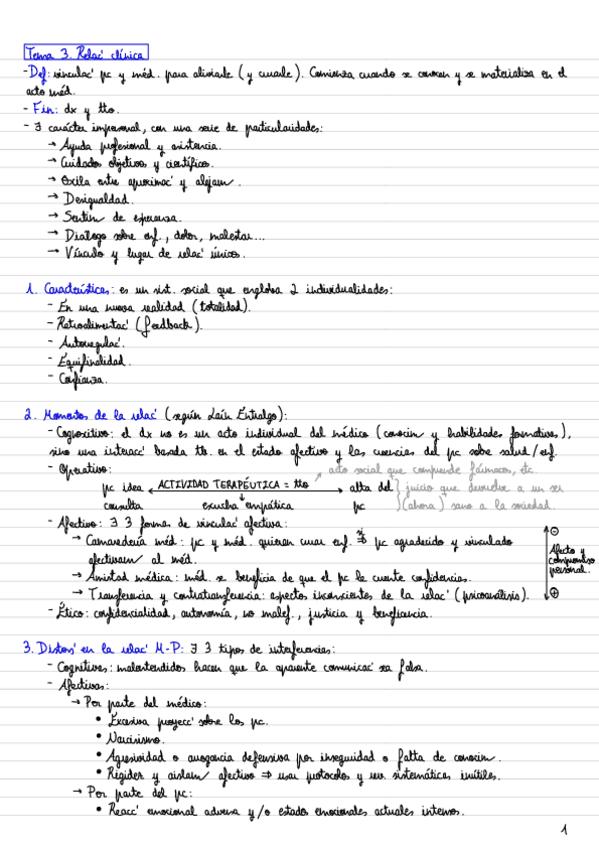 Tema 3. Relac' clínica
- Def: vinculac' pc y méd. para aliviarle (y curarle). Comienza cuando se conocen y se materializa en el
acto méd.
- Fin: dx y tto.
- ∃ carácter impersonal, con una serie de particularidades:
→ Ayuda profesional y asistencia.
→ Cuidados objetivos y científico.
→ Oscila entre aproximac' y alejam.
→ Desigualdad.
→ Sentim de esperanza.
→ Dialogo sobre enf., dolor, malestar...
→ Vínculo y lugar de relac' únicos.
1. Características: es un sist. social que engloba 2 individualidades:
- En una nueva realidad (totalidad).
- Retroalimentac' (feedback).
- Autorregulac'.
- Equifinalidad.
- Confianza.
2. Momentos de la relac' (según Laín Entralgo):
- Cognoscitivo: el dx no es un acto individual del médico (conocim y habilidades formativos),
sino una interacc' basada tb. en el estado afectivo y las creencias del pc sobre salud/enf.
- Operativo: acto social que comprende fármacos, etc.
pc idea ← ACTIVIDAD TERAPÉUTICA = tto → alta del } juicio que devuelve a un ser
consulta escucha empática pc } (ahora) sano a la sociedad.
- Afectivo: ∃ 3 formas de vinculac' afectiva:
→ Camaradería méd: pc y méd. quieren curar enf. ⇒ pc agradecido y vinculado
afectivam al méd.
→ Amistad médica: méd. se beneficia de que el pc le cuente confidencias.
→ Transferencia y contratransferencia: aspectos inconscientes de la relac' (psicoanálisis).
⊖
Afecto y
compromiso
personal.
⊕
- Ético: confidencialidad, autonomía, no malef., justicia y beneficencia.
3. Distors' en la relac' M-P: ∃ 3 tipos de interferencias:
- Cognitivas: malentendidos hacen que la aparente comunicac' sea falsa.
- Afectivas:
→ Por parte del médico:
• Excesiva proyecc' sobre los pc.
• Narcisismo.
• Agresividad o arrogancia defensiva por inseguridad o falta de conocim.
• Rigidez y aislam afectivo ⇒ usar protocolos y rev. sistemáticas inútiles.
→ Por parte del pc:
• Reacc' emocional adversa y/o estados emocionales actuales intensos.
1